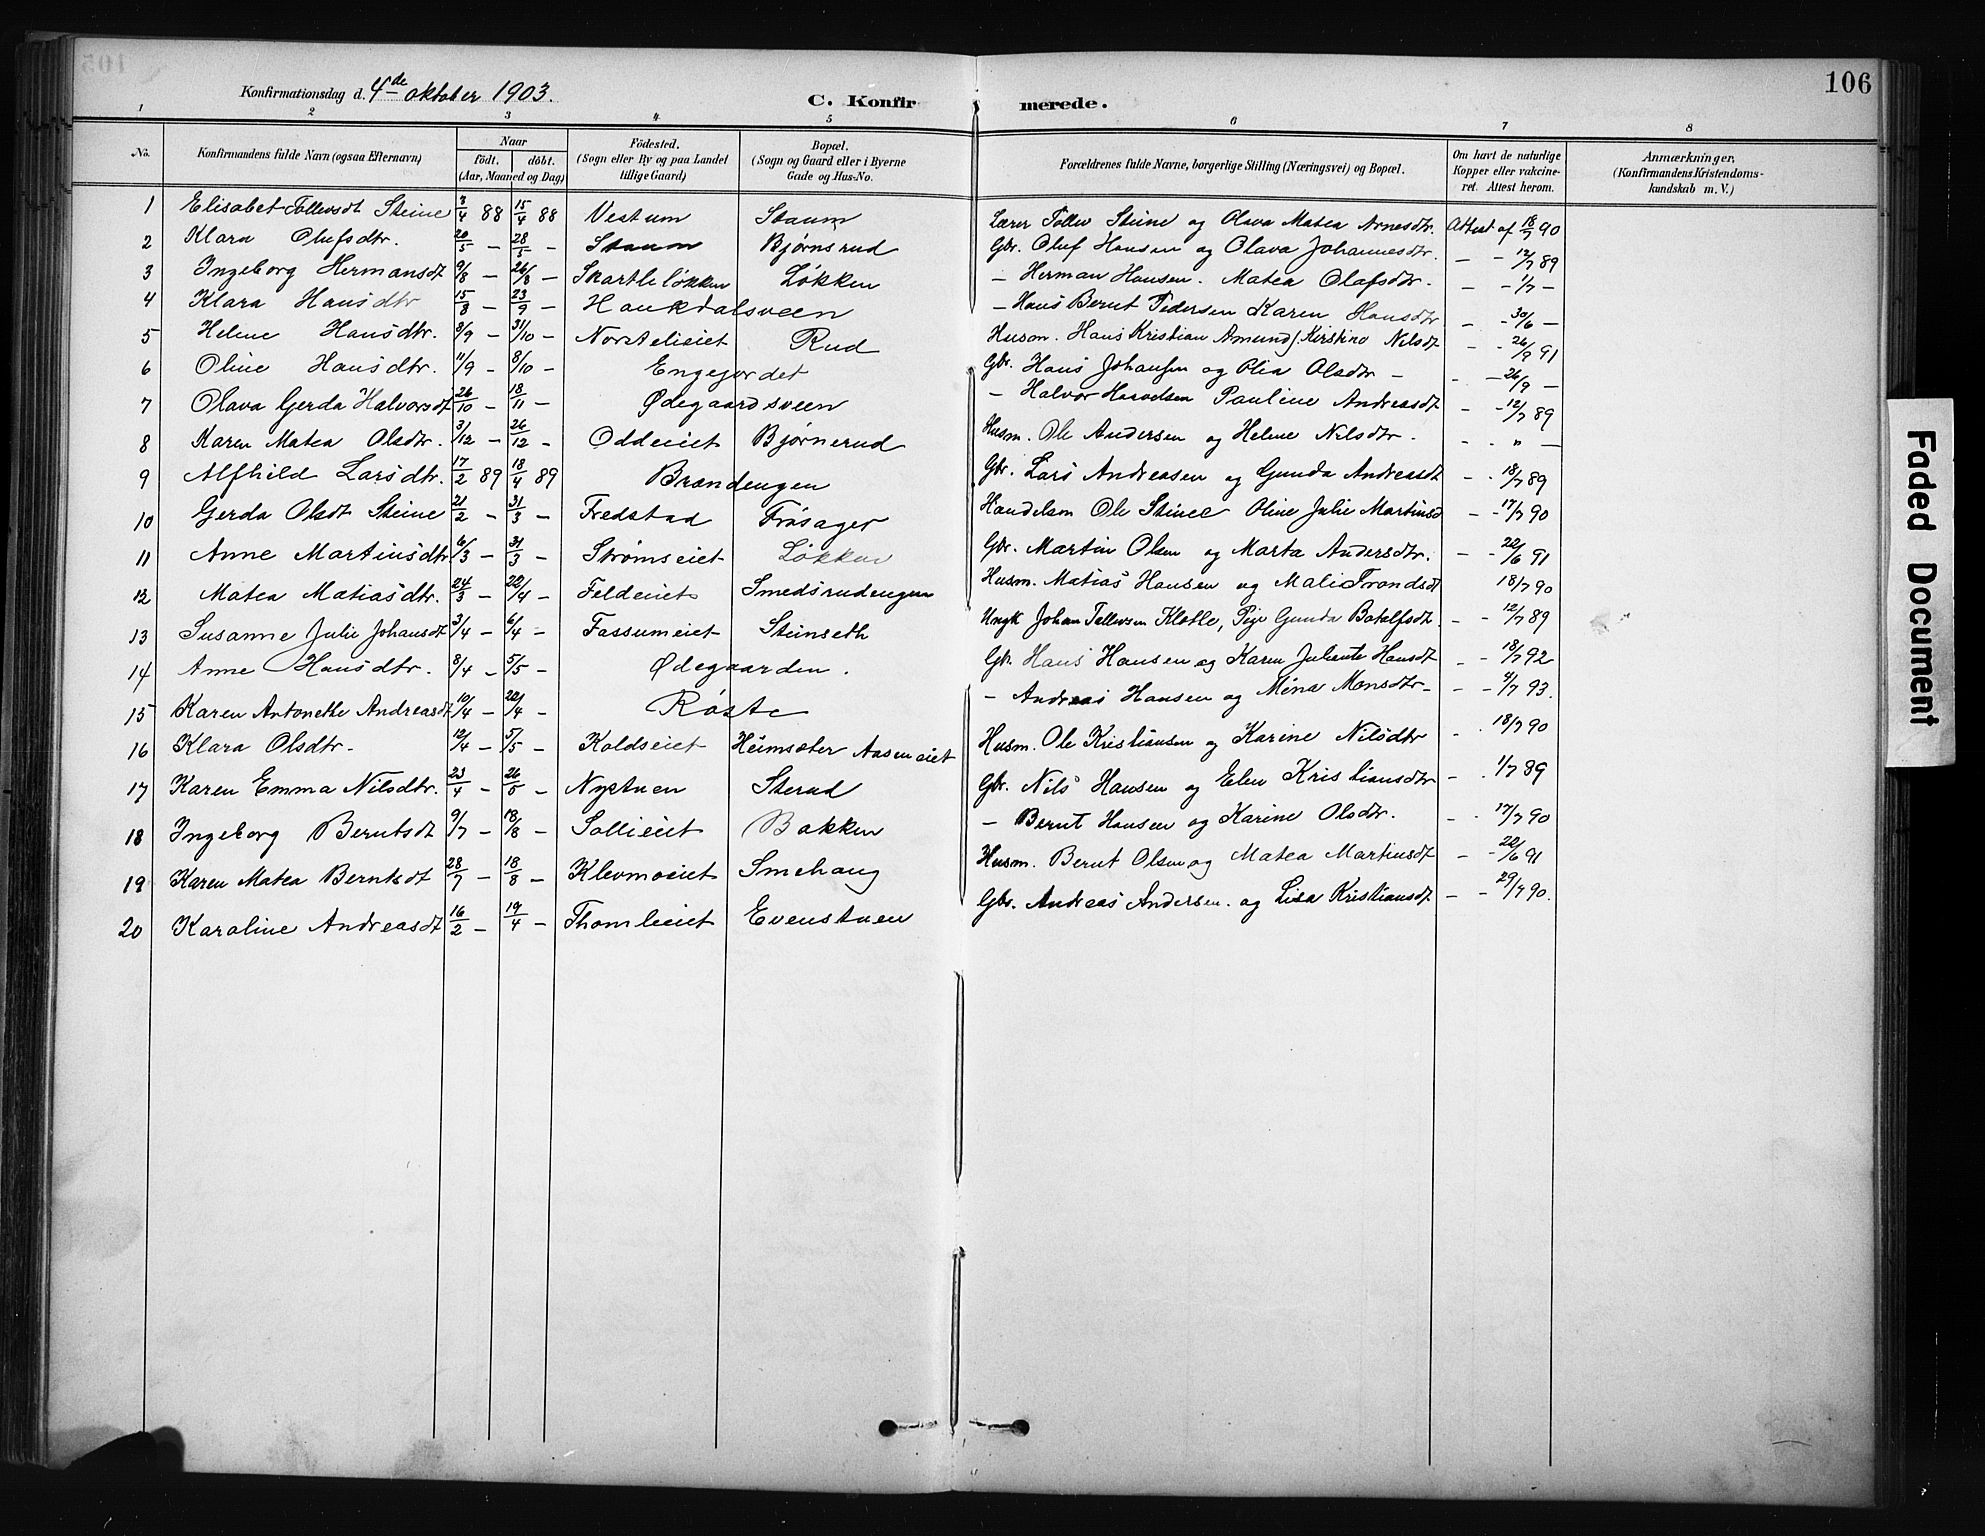 106
Konfirmationsdag d. 4de oktober 1903.
C. Konfirmerede.
1 2 3 4 5 6 7 8
No. Konfirmandens fulde Navn (ogsaa Efternavn) Naar født. døbt. (Aar, Maaned og Dag) Fødested. (Sogn eller By og paa Landet tillige Gaard) Bopæl. (Sogn og Gaard eller i Byerne Gade og Hus-No. Forældrenes fulde Navne, borgerlige Stilling (Næringsvei) og Bopæl. Om havt de naturlige Kopper eller vakcineret. Attest herom. Anmærkninger, (Konfirmandens Kristendomskundskab m. V.)
1 Elisabet Tollevsdt Steine 3/4 88 15/4 88 Vestum Staum Lærer Tollev Steine og Olava Matea Arnesdtr. Attest af 18/7 90
2 Klara Olufsdtr. 20/5 – 28/5 – Staum Bjørnsrud Gbr. Oluf Hansen og Olava Johannesdtr. – – 12/7 89
3 Ingeborg Hermansdt 9/8 – 26/8 – Skartleløkken Løkken – Herman Hansen. Matea Olafsdtr. – – 1/7 –
4 Klara Hansdtr 15/8 – 23/9 – Haukdalsveen – Hans Bernt Pedersen Karen Hansdtr – – 30/6 –
5 Helene Hansdtr. 3/9 – 31/10 – Norstelieiet Rud Husm. Hans Kristian Amunds. Kirstine Nilsdt – – 26/9 91
6 Oline Hansdtr. 11/9 – 8/10 – Engejordet Gbr. Hans Johansen og Olia Olsdtr – – – 26/9 –
7 Olava Gerda Halvorsdt 26/10 – 18/11 – Ødegaardsveen – Halvor Pauline Andreasdt – – 12/7 89
8 Karen Matea Olsdtr. 3/12 – 26/12 – Oddeiet Bjørnerud Husm. Ole Andersen og Helene Nilsdtr. – – " –
9 Alfhild Larsdtr. 17/2 89 18/4 89 Brændengen Gbr. Lars Andreasen og Gunda Andreasdt – – 18/7 89
10 Gerda Olsdt Steine 21/2 – 31/3 – Fredstad Frøsager Handelsm Ole Steine Oline Julie Martinsd – – 17/7 90
11 Anne Martinsdtr. 6/3 – 31/3 – Strømseiet Løkken Gbr. Martin Olsen og Marta Andersdtr. – – 22/6 91
12 Matea Matiasdtr. 24/3 – 22/4 – Feldeiet Smedsrudengen Husm. Matias Hansen og Mali Trondsdt 18/7 90
13 Susanne Julie Johansdt 3/4 – 6/4 – Fassumeiet Steinseth Ungk Johan Tollevsen Klætle, Pige Gunda Botolfsdt. – – 12/7 89
14 Anne Hansdtr. 8/4 – 5/5 – Ødegaarden. Gbr. Hans Hansen og Karen Juliente Hansdt – – 18/7 92
15 Karen Antonette Andreasdt 10/4 – 22/4 – Røste – Andreas Hansen og Mina Monsdtr – – – 4/7 93.
16 Klara Olsdtr. 12/4 – 5/5 – Koldseiet Heimsæter Aaseneiet Husm. Ole Kristiansen og Karine Nilsdtr – . 18/7 90
17 Karen Emma Nilsdtr. 23/4 – 26/5 – Nystuen Sterud Gbr. Nils Hansen og Elen Kristiansdtr – . 1/7 89
18 Ingeborg Berntsdt 9/7 – 18/8 – Sollieiet Bakken – Bernt Hansen og Karine Olsdtr. – . 17/7 90
19 Karen Matea Berntsdt 28/7 – 18/8 – Klevmoeiet Smehaug Husm. Bernt Olsen og Matea Martinsdt – – 22/6 91
20 Karoline Andreasdt 16/2 – 19/4 – Thomleeiet Evenstuen Gbr. Andreas Andersen. og Lisa Kristiansdt – – 29/7 90.
Faded Document